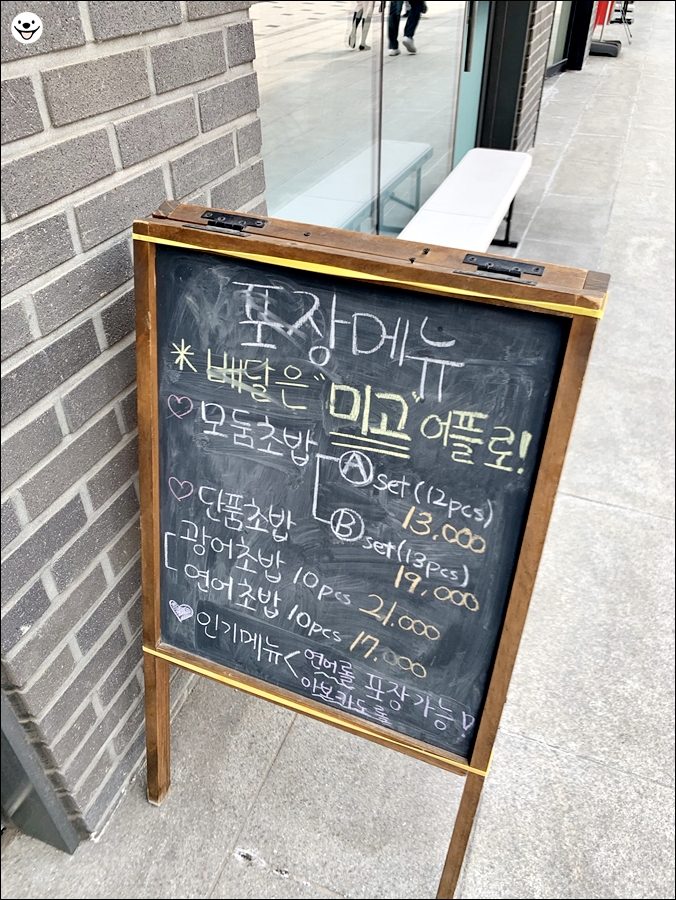 포장메뉴
* 배달은 "미고" 어플로!
♡ 모둠초밥
Ⓐ set (12pcs)
13,000
Ⓑ set (13pcs)
19,000
♡ 단품초밥
광어초밥 10pcs 21,000
연어초밥 10pcs 17,000
♡ 인기메뉴 < 연어롤 포장가능!
아보카도롤